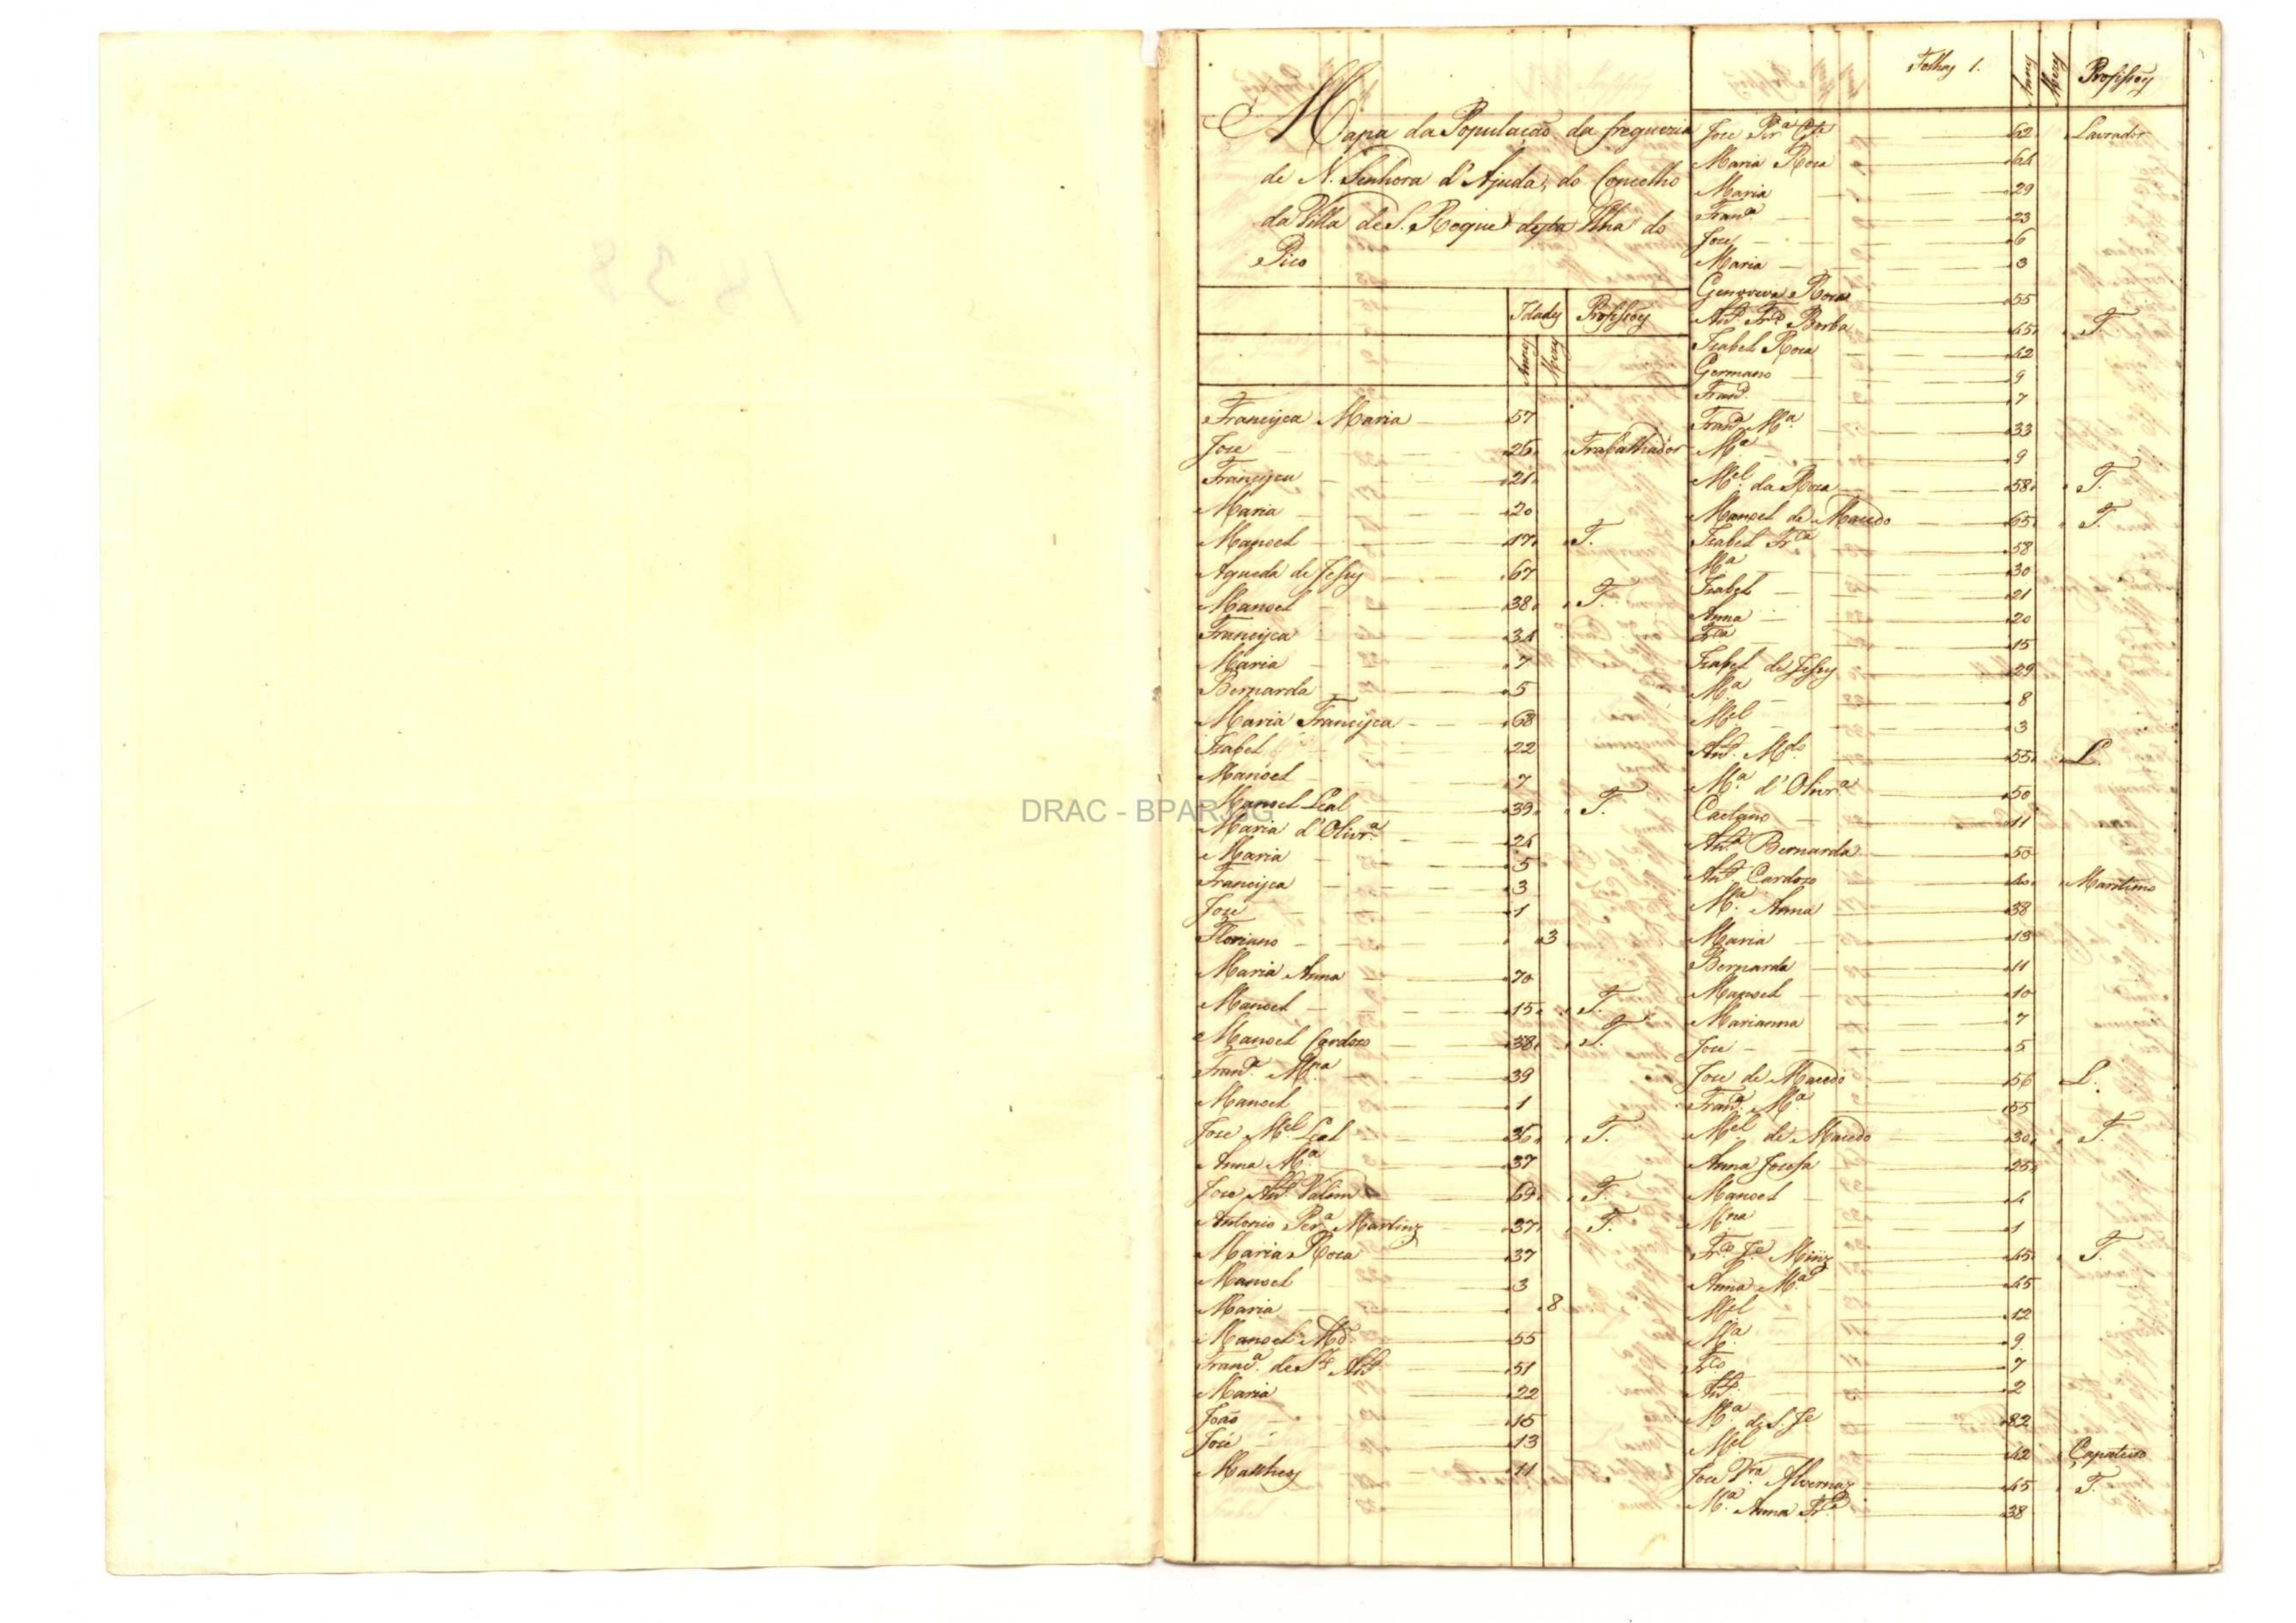 1838
Mapa da População da freguezia
de N. Senhora d'Ajuda, do Concelho
da Villa de S. Roque desta Ilha do
Pico
Idades Profissoẽs
Annos Mezes
Francisca Maria 57
Jose 26 Trabalhador
Francisca 21
Maria 20
Manoel 17 T.
Agueda de Jesus 67
Manoel 38 T.
Francisca 34
Maria 7
Bernarda 5
Maria Francisca 68
Izabel 22
Manoel 7
Manoel Leal 39 T.
Maria d'Olivrª 24
Maria 5
Francisca 3
Jose 1
Floriano 3
Maria Anna 70
Manoel 15 T.
Manoel Cardozo 38 T.
Francª Mria 39
Manoel 1
Jose Mel Leal 36 T.
Anna Mª 37
Jose Antº Valim 69 T.
Antonio Perª Martinz 37 T.
Maria Roza 37
Manoel 3
Maria 8
Manoel Mdo 55
Francª de Sto Antº 51
Maria 22
João 16
José 13
Matheos 11
Folhas 1.
Annos Mezes Profissoẽs
Jose Perª 62 Lavrador
Maria Roza 64
Maria 29
Francª 23
Jose 6
Maria 3
Genoveva Roza 55
Antº Frco Borba 45 T.
Izabel Roza 42
Germano 9
Franco 7
Francª Mª 33
Mª 9
Mel da Roza 58 T.
Manoel de Macedo 65 T.
Izabel Frca 58
Mª 30
Izabel 21
Anna 20
Frca 15
Izabel de Jesus 29
Mª 8
Mel 3
Antº Mdo 55 L.
Mª d'Olivrª 50
Caetano 11
Antª Bernarda 50
Antº Cardozo 40 Maritimo
Mª Anna 38
Maria 13
Bernarda 11
Manoel 10
Marianna 7
Jose 5
Jose de Macedo 56 L.
Francª Mª 55
Mel de Macedo 30 T.
Anna Josefa 25
Manoel 4
Mria 1
Frco Je Miñz 45 T.
Anna Mª 45
Mel 12
Mª 9
Frco 7
Antº 2
Mª de S. Je 82
Mel 42 Çapateiro
Jose Vrª Alvernaz 45 T.
Mª Anna Frca 38
DRAC - BPARJJG